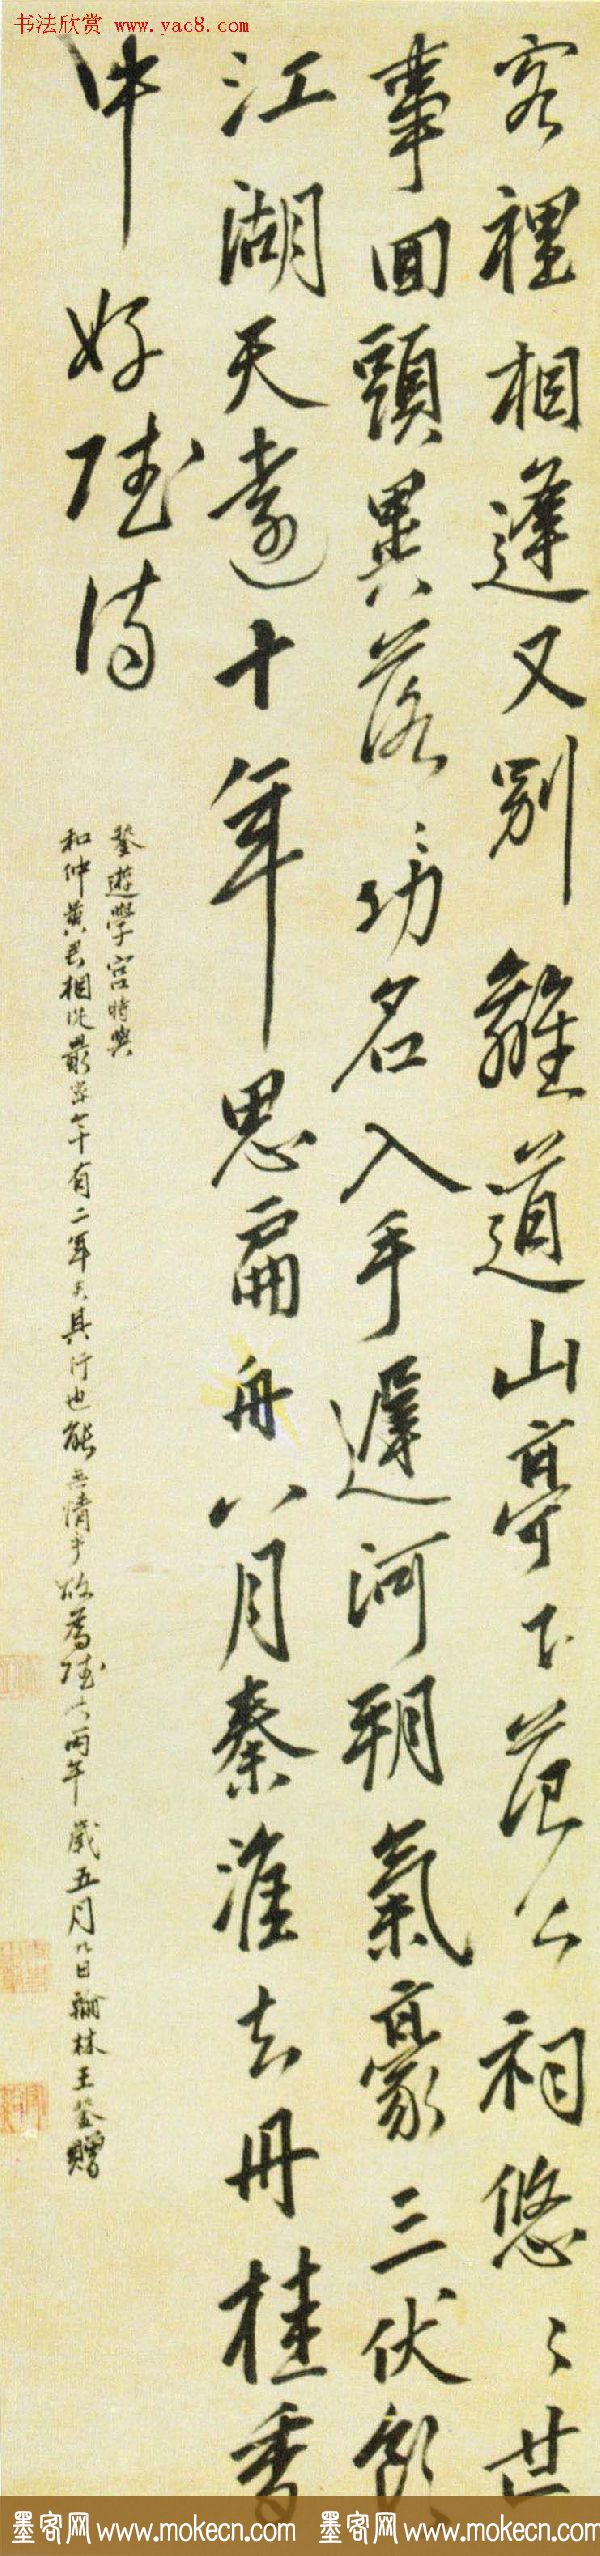 书法欣赏 www.yac8.com
客裡相逢又別離道山亭下范公祠悠〻世
事回頭異落〻功名入手遲河朔氣豪三伏飲
江湖天遠十年思扁舟八月秦淮去丹桂香
中好陸詩
鏊遊學宮時與
和仲黃君相從最 今十有二年矣其行也能無情乎 丙午歲五月八日翰林王鏊贈
墨客网 www.mokecn.com 墨客网 www.mokecn.com